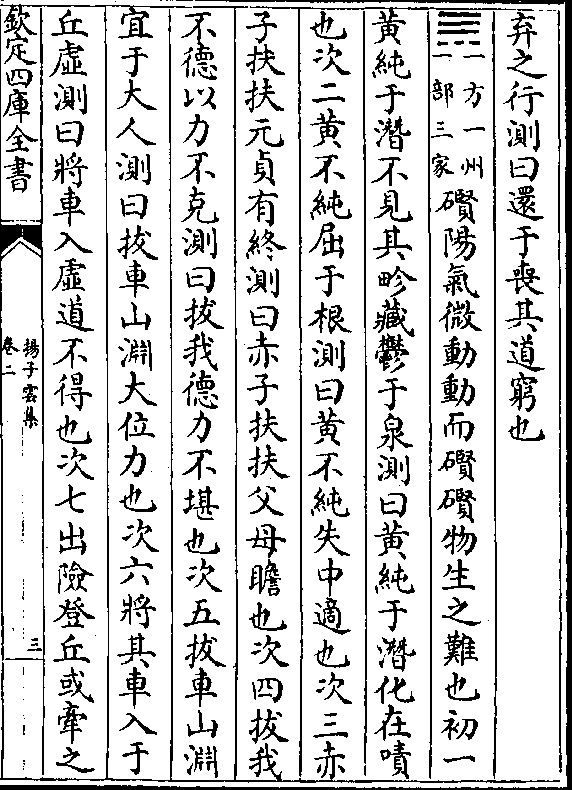 弃之行測曰還于喪其道窮也
一方一州
一部三家
礥陽氣微動動而礥礥物生之難也初一
黃純于潛不見其畛藏鬱于泉測曰黃純于潛化在嘖
也次二黃不純屈于根測曰黃不純失中適也次三赤
子扶扶元貞有終測曰赤子扶扶父母瞻也次四拔我
不德以力不克測曰拔我德力不堪也次五拔車山淵
宜于大人測曰拔車山淵大位力也次六將其車入于
丘虛測曰將車入虛道不得也次七出險登丘或牽之
欽定四庫全書
揚子雲集
卷二
三